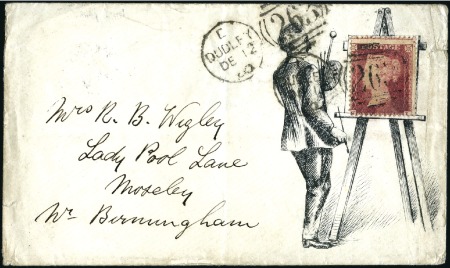 C
DUDLEY
DE 12
263
POSTAGE
263
Mrs R. B. Wigley
Lady Pool Lane
Moseley
Nr. Birmingham